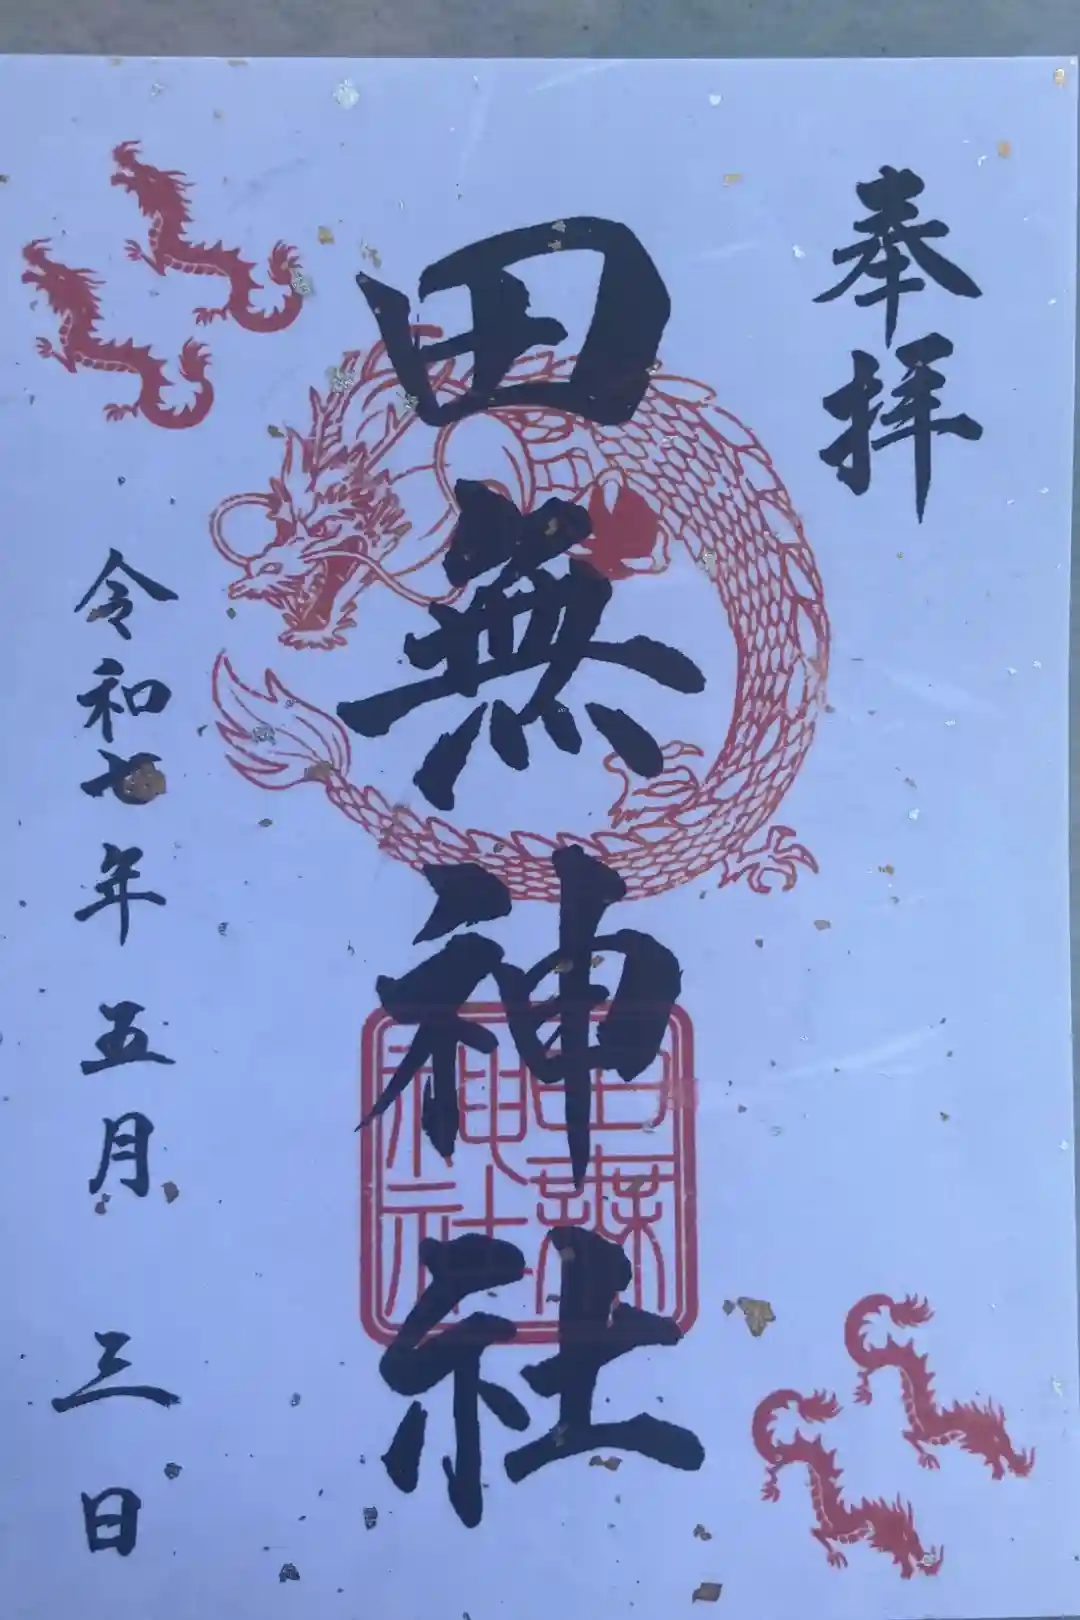 奉拝
田無神社
田無神社
令和七年五月三日